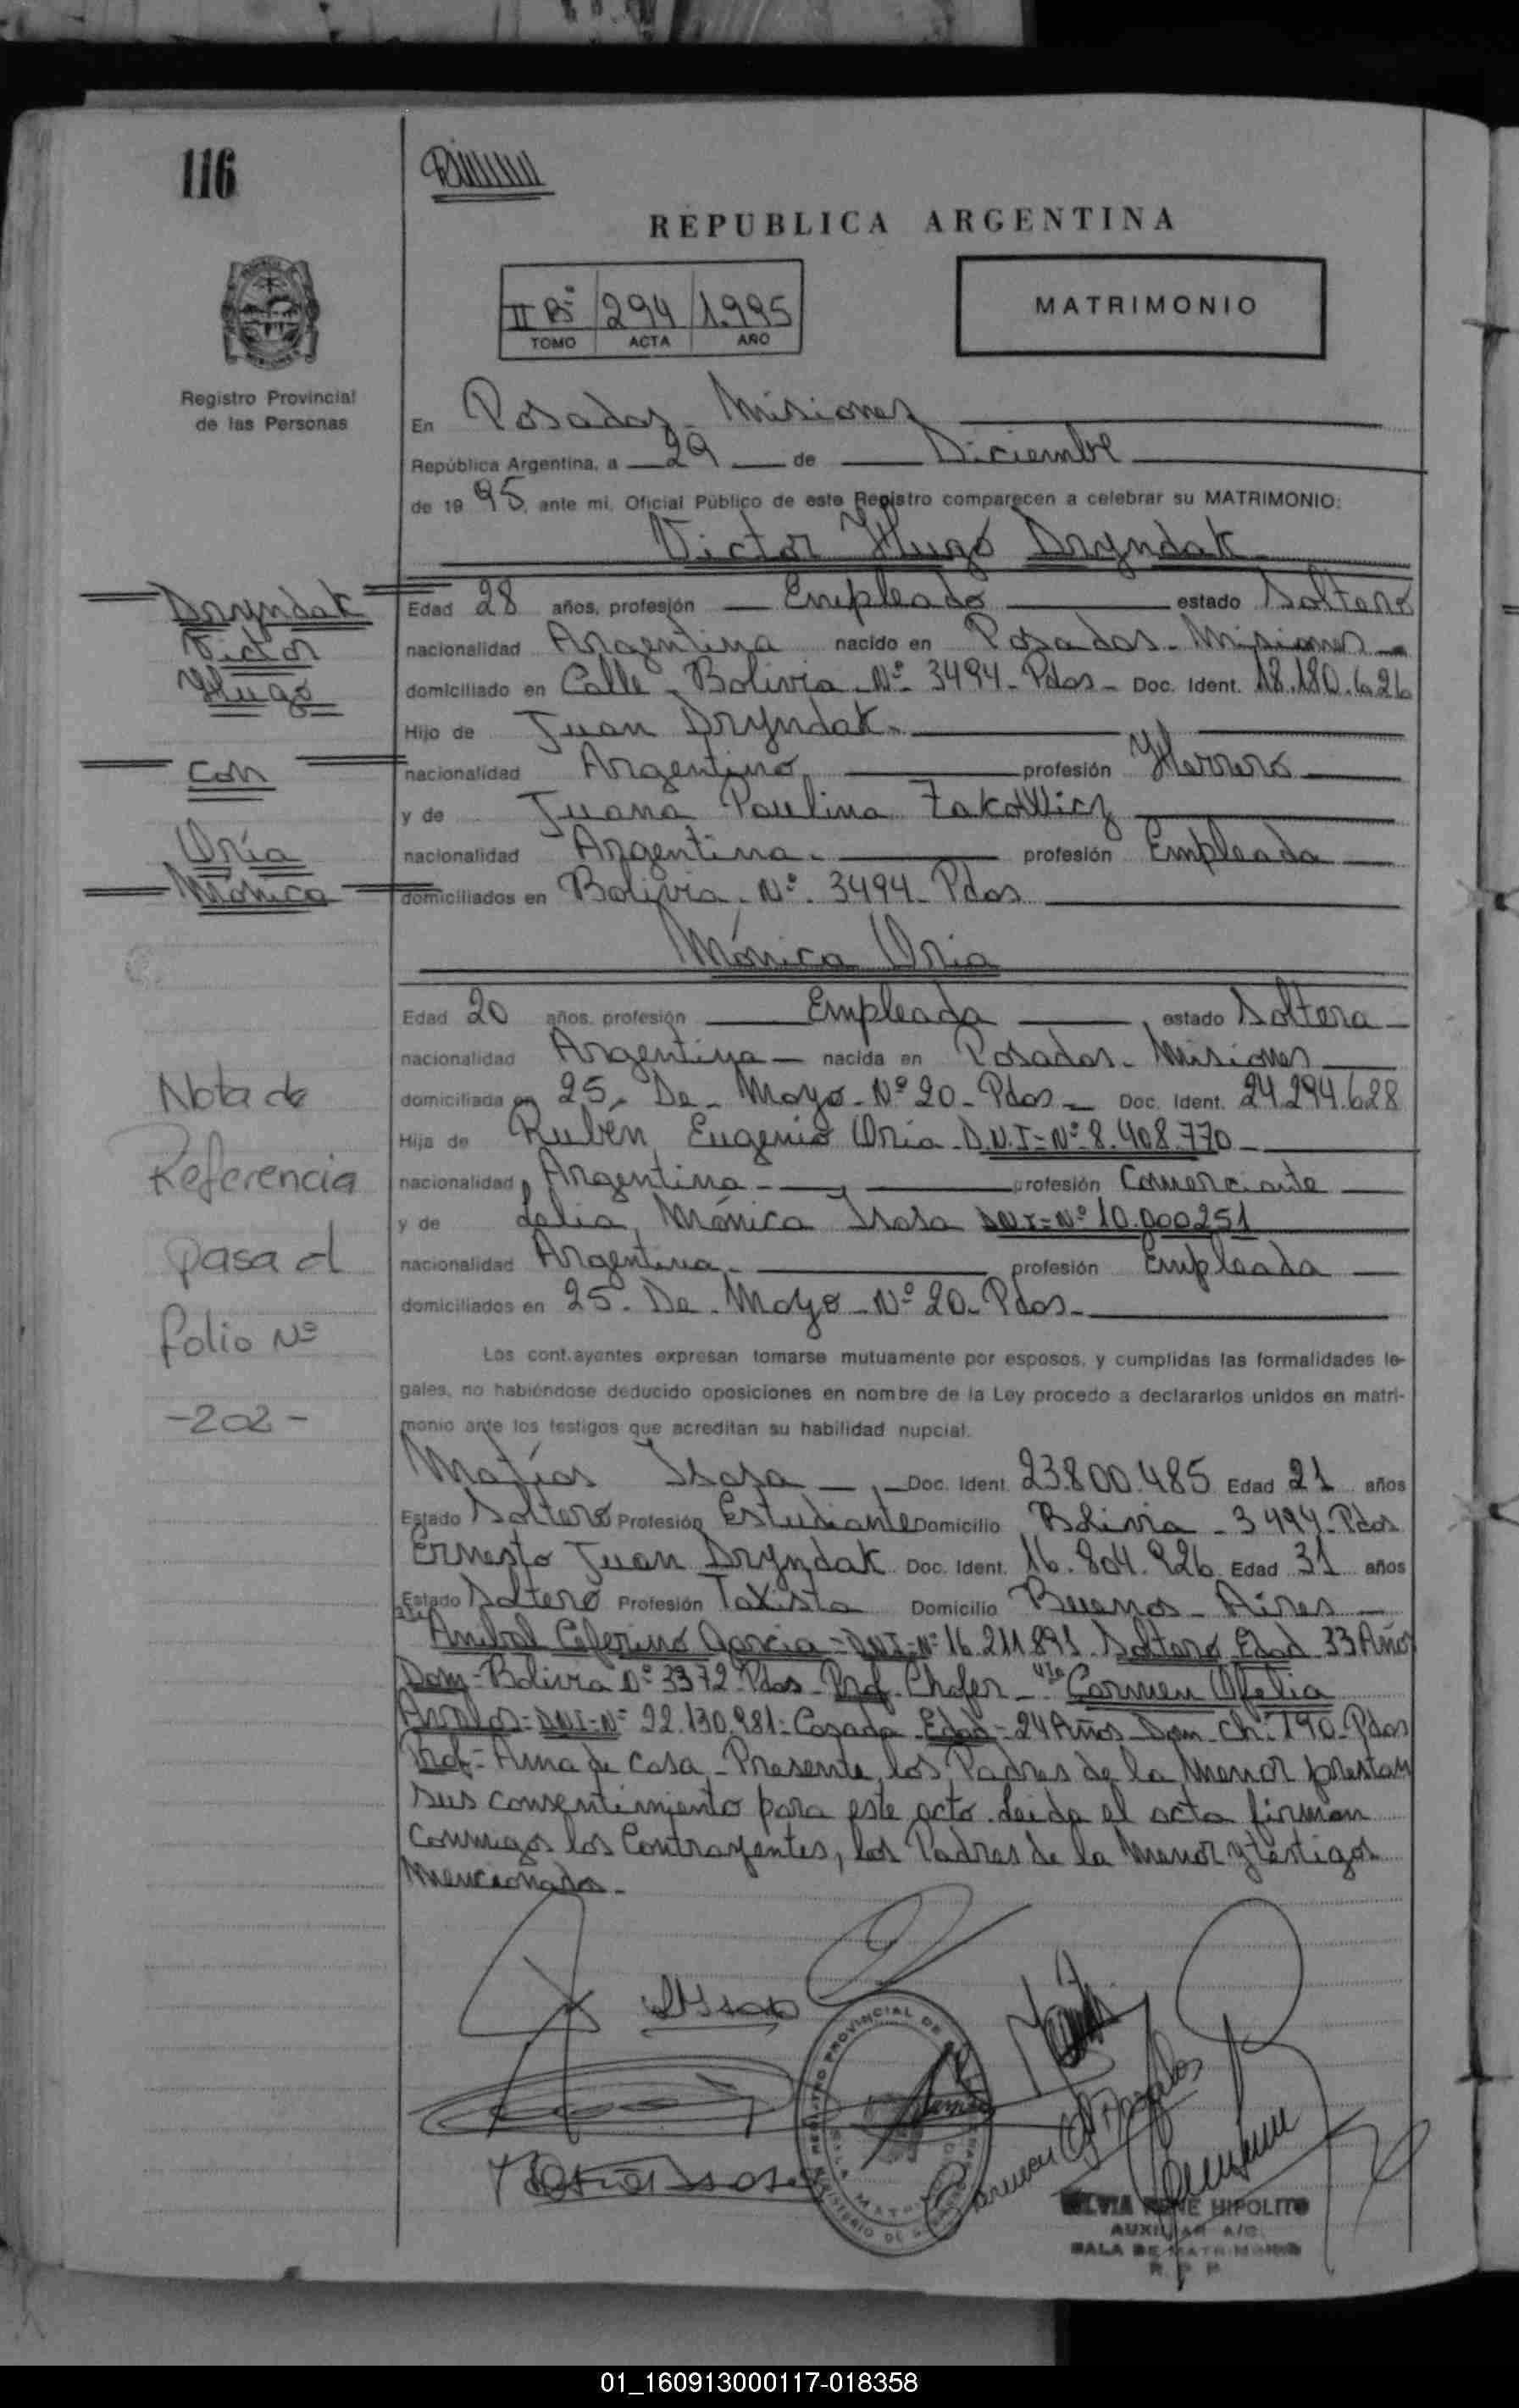 116
REPUBLICA ARGENTINA
II Bº 294 1.995
TOMO ACTA AÑO
MATRIMONIO
Registro Provincial
de las Personas
En Posadas - Misiones
República Argentina, a 29 de Diciembre
de 19 95, ante mi, Oficial Público de este Registro comparecen a celebrar su MATRIMONIO:
Victor Hugo Dryndak
Dryndak
Victor
Hugo
con
Oría
Mónica
Edad 28 años, profesión Empleado estado Soltero
nacionalidad Argentina nacido en Posadas - Misiones -
domiciliado en Calle - Bolivia - Nº - 3494 - Pdas - Doc. Ident. 18.180.626
Hijo de Juan Dryndak -
nacionalidad Argentino profesión Herrero
y de Juana Paulina Zakowicz
nacionalidad Argentina - profesión Empleada
domiciliados en Bolivia - Nº - 3494 - Pdas
Mónica Oria
Edad 20 años, profesión Empleada estado Soltera
nacionalidad Argentina - nacida en Posadas - Misiones
domiciliada en 25 - De - Mayo - Nº 20 - Pdas - Doc. Ident. 24.294.628
Hija de Rubén Eugenio Oria - D.N.I = Nº 8.408.770 -
nacionalidad Argentina - profesión Comerciante
y de Lelia Mónica Isasa DNI = Nº 10.000251
nacionalidad Argentina - profesión Empleada
domiciliados en 25 - De - Mayo - Nº 20 - Pdas -
Nota de
Referencia
pasa al
folio Nº
- 202 -
Los contrayentes expresan tomarse mutuamente por esposos, y cumplidas las formalidades le-
gales, no habiéndose deducido oposiciones en nombre de la Ley procedo a declararlos unidos en matri-
monio ante los testigos que acreditan su habilidad nupcial.
Matías Isasa - Doc. Ident. 23.800.485 Edad 21 años
Estado Soltero Profesión Estudiante Domicilio Bolivia - 3494 - Pdas
Ernesto Juan Dryndak Doc. Ident. 16.804.926 Edad 31 años
Estado Soltero Profesión Taxista Domicilio Buenos - Aires -
Anibal Ceferino Garcia = DNI = Nº 16.211.891 Soltero Edad 33 Años
Dom - Bolivia Nº 3372 - Pdas - Prof. Chofer - 4ta Carmen Ofelia
Avalos = DNI = Nº 22.130.981 = Casada - Edad = 24 Años - Dom - Ch: 190 - Pdas
Prof = Ama de casa - Presente los Padres de la Menor prestan
sus consentimiento para este acto. Leida el acta firman
conmigo los Contrayentes, los Padres de la Menor y testigos
Mencionados -
REGISTRO PROVINCIAL DE
SILVIA HIPOLITO
AUXILIAR A/C
SALA DE MATRIMONIO
R P P
01_160913000117-018358